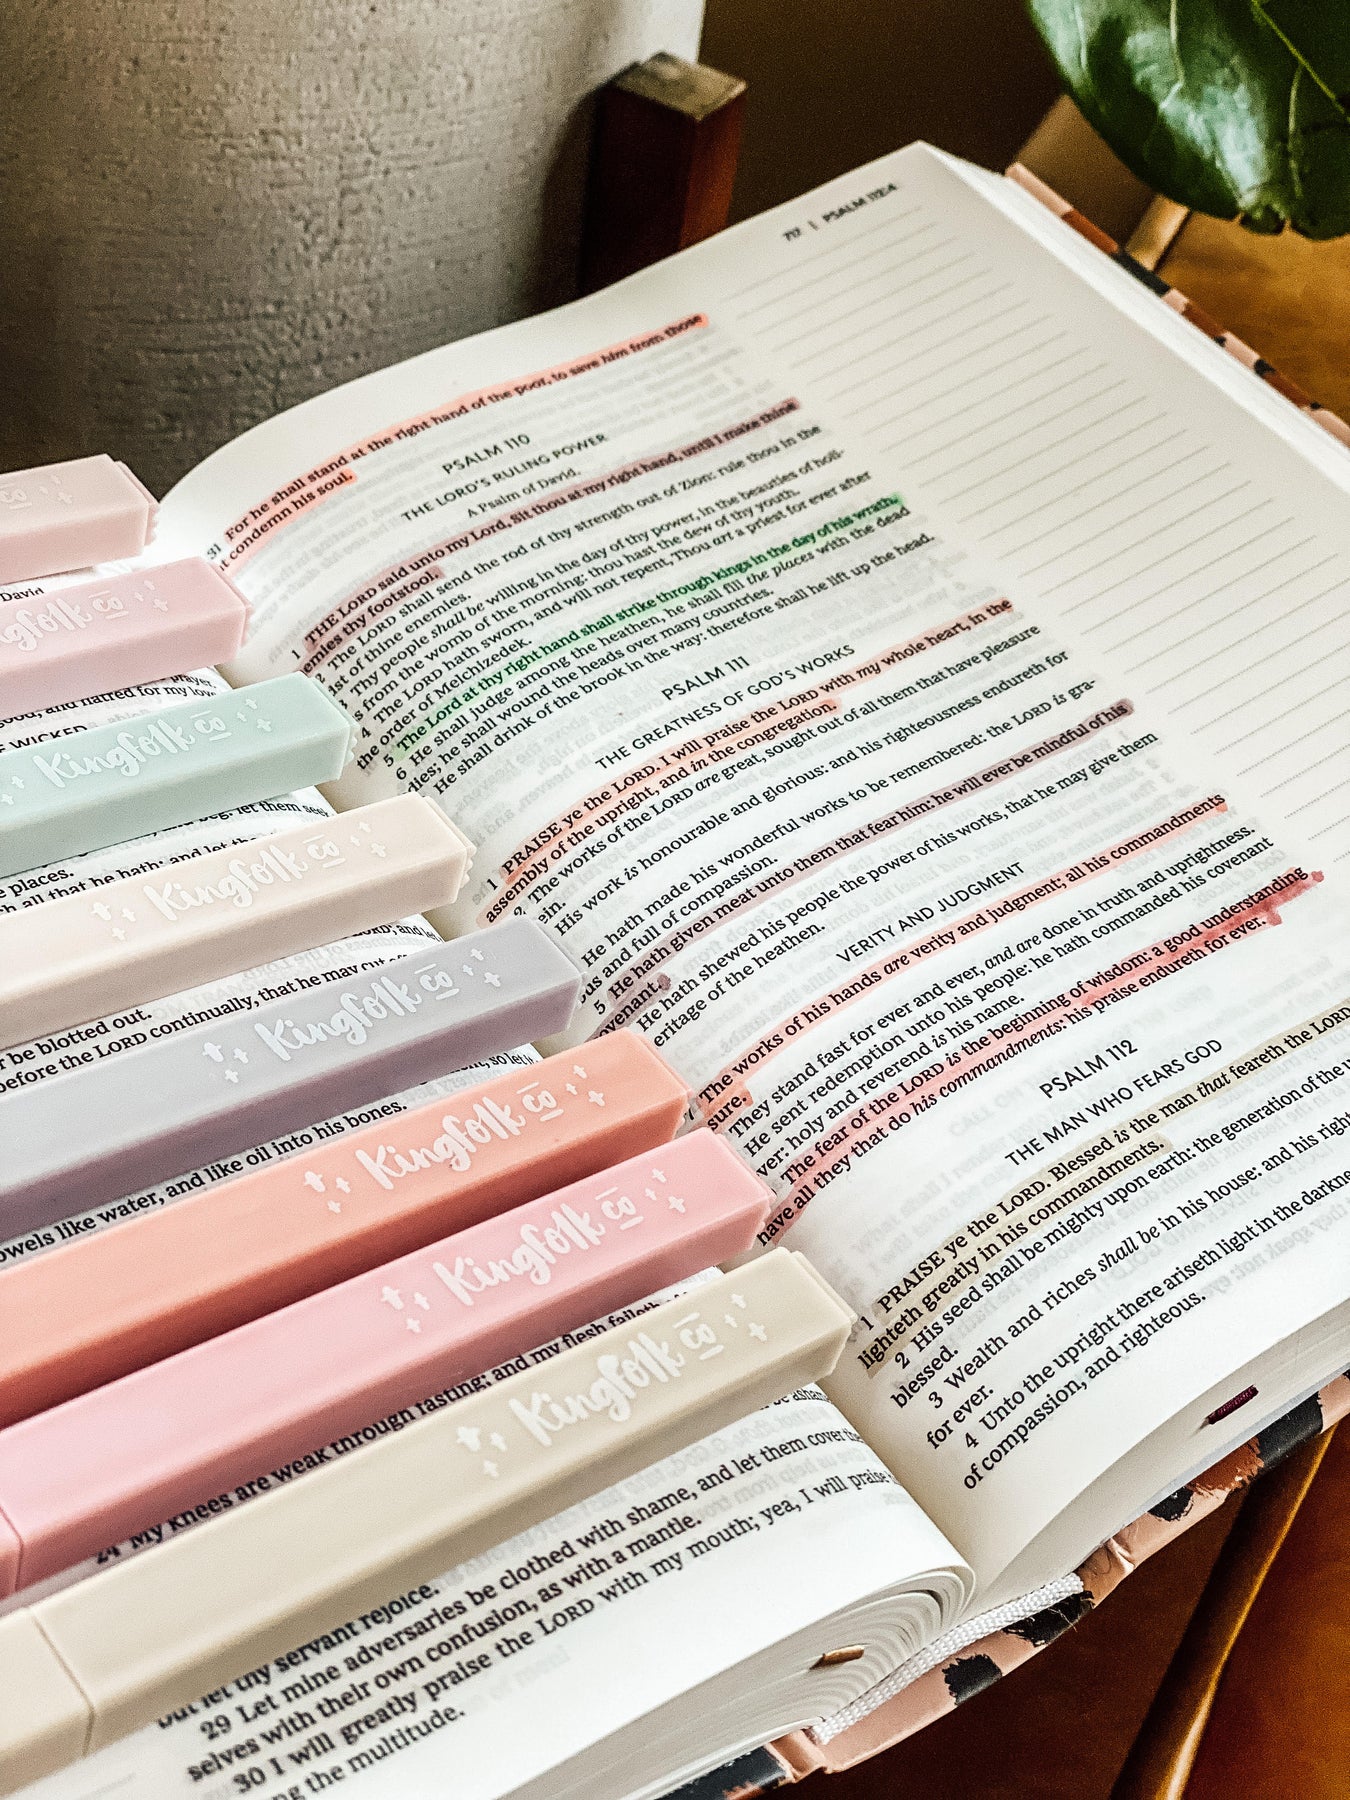 Kingfolk co
Kingfolk co
Kingfolk co
Kingfolk co
Kingfolk co
Kingfolk co
Kingfolk co
David
and hatred for my love
WICKED
let them seek
places.
all that he hath; and let the
LORD; and let
LORD continually, that he may cut off
be blotted out.
before the LORD
so let
bowels like water, and like oil into his bones.
24 My knees are weak through fasting; and my flesh faileth of
be ashamed
but let thy servant rejoice.
29 Let mine adversaries be clothed with shame, and let them cover
selves with their own confusion, as with a mantle.
30 I will greatly praise the LORD with my mouth; yea, I will praise
the multitude.
717 | PSALM 112:4
31 For he shall stand at the right hand of the poor, to save him from those
condemn his soul.
PSALM 110
THE LORD'S RULING POWER
A Psalm of David.
1 THE LORD said unto my Lord, Sit thou at my right hand, until I make thine
emies thy footstool.
2 The LORD shall send the rod of thy strength out of Zion: rule thou in the
of thine enemies.
3 Thy people shall be willing in the day of thy power, in the beauties of holi-
s from the womb of the morning: thou hast the dew of thy youth.
4 The LORD hath sworn, and will not repent, Thou art a priest for ever after
the order of Melchizedek.
5 The Lord at thy right hand shall strike through kings in the day of his wrath.
6 He shall judge among the heathen, he shall fill the places with the dead
dies; he shall wound the heads over many countries.
He shall drink of the brook in the way: therefore shall he lift up the head.
PSALM 111
THE GREATNESS OF GOD'S WORKS
1 PRAISE ye the LORD. I will praise the LORD with my whole heart, in the
assembly of the upright, and in the congregation.
2 The works of the LORD are great, sought out of all them that have pleasure
ein.
His work is honourable and glorious: and his righteousness endureth for
He hath made his wonderful works to be remembered: the LORD is gra-
us and full of compassion.
5 He hath given meat unto them that fear him: he will ever be mindful of his
ovenant.
He hath shewed his people the power of his works, that he may give them
eritage of the heathen.
VERITY AND JUDGMENT
7 The works of his hands are verity and judgment; all his commandments
sure.
They stand fast for ever and ever, and are done in truth and uprightness.
He sent redemption unto his people: he hath commanded his covenant
ver: holy and reverend is his name.
The fear of the LORD is the beginning of wisdom: a good understanding
have all they that do his commandments: his praise endureth for ever.
PSALM 112
THE MAN WHO FEARS GOD
1 PRAISE ye the LORD. Blessed is the man that feareth the LORD
lighteth greatly in his commandments.
2 His seed shall be mighty upon earth: the generation of the
blessed.
3 Wealth and riches shall be in his house: and his right
for ever.
4 Unto the upright there ariseth light in the darkne
of compassion, and righteous.